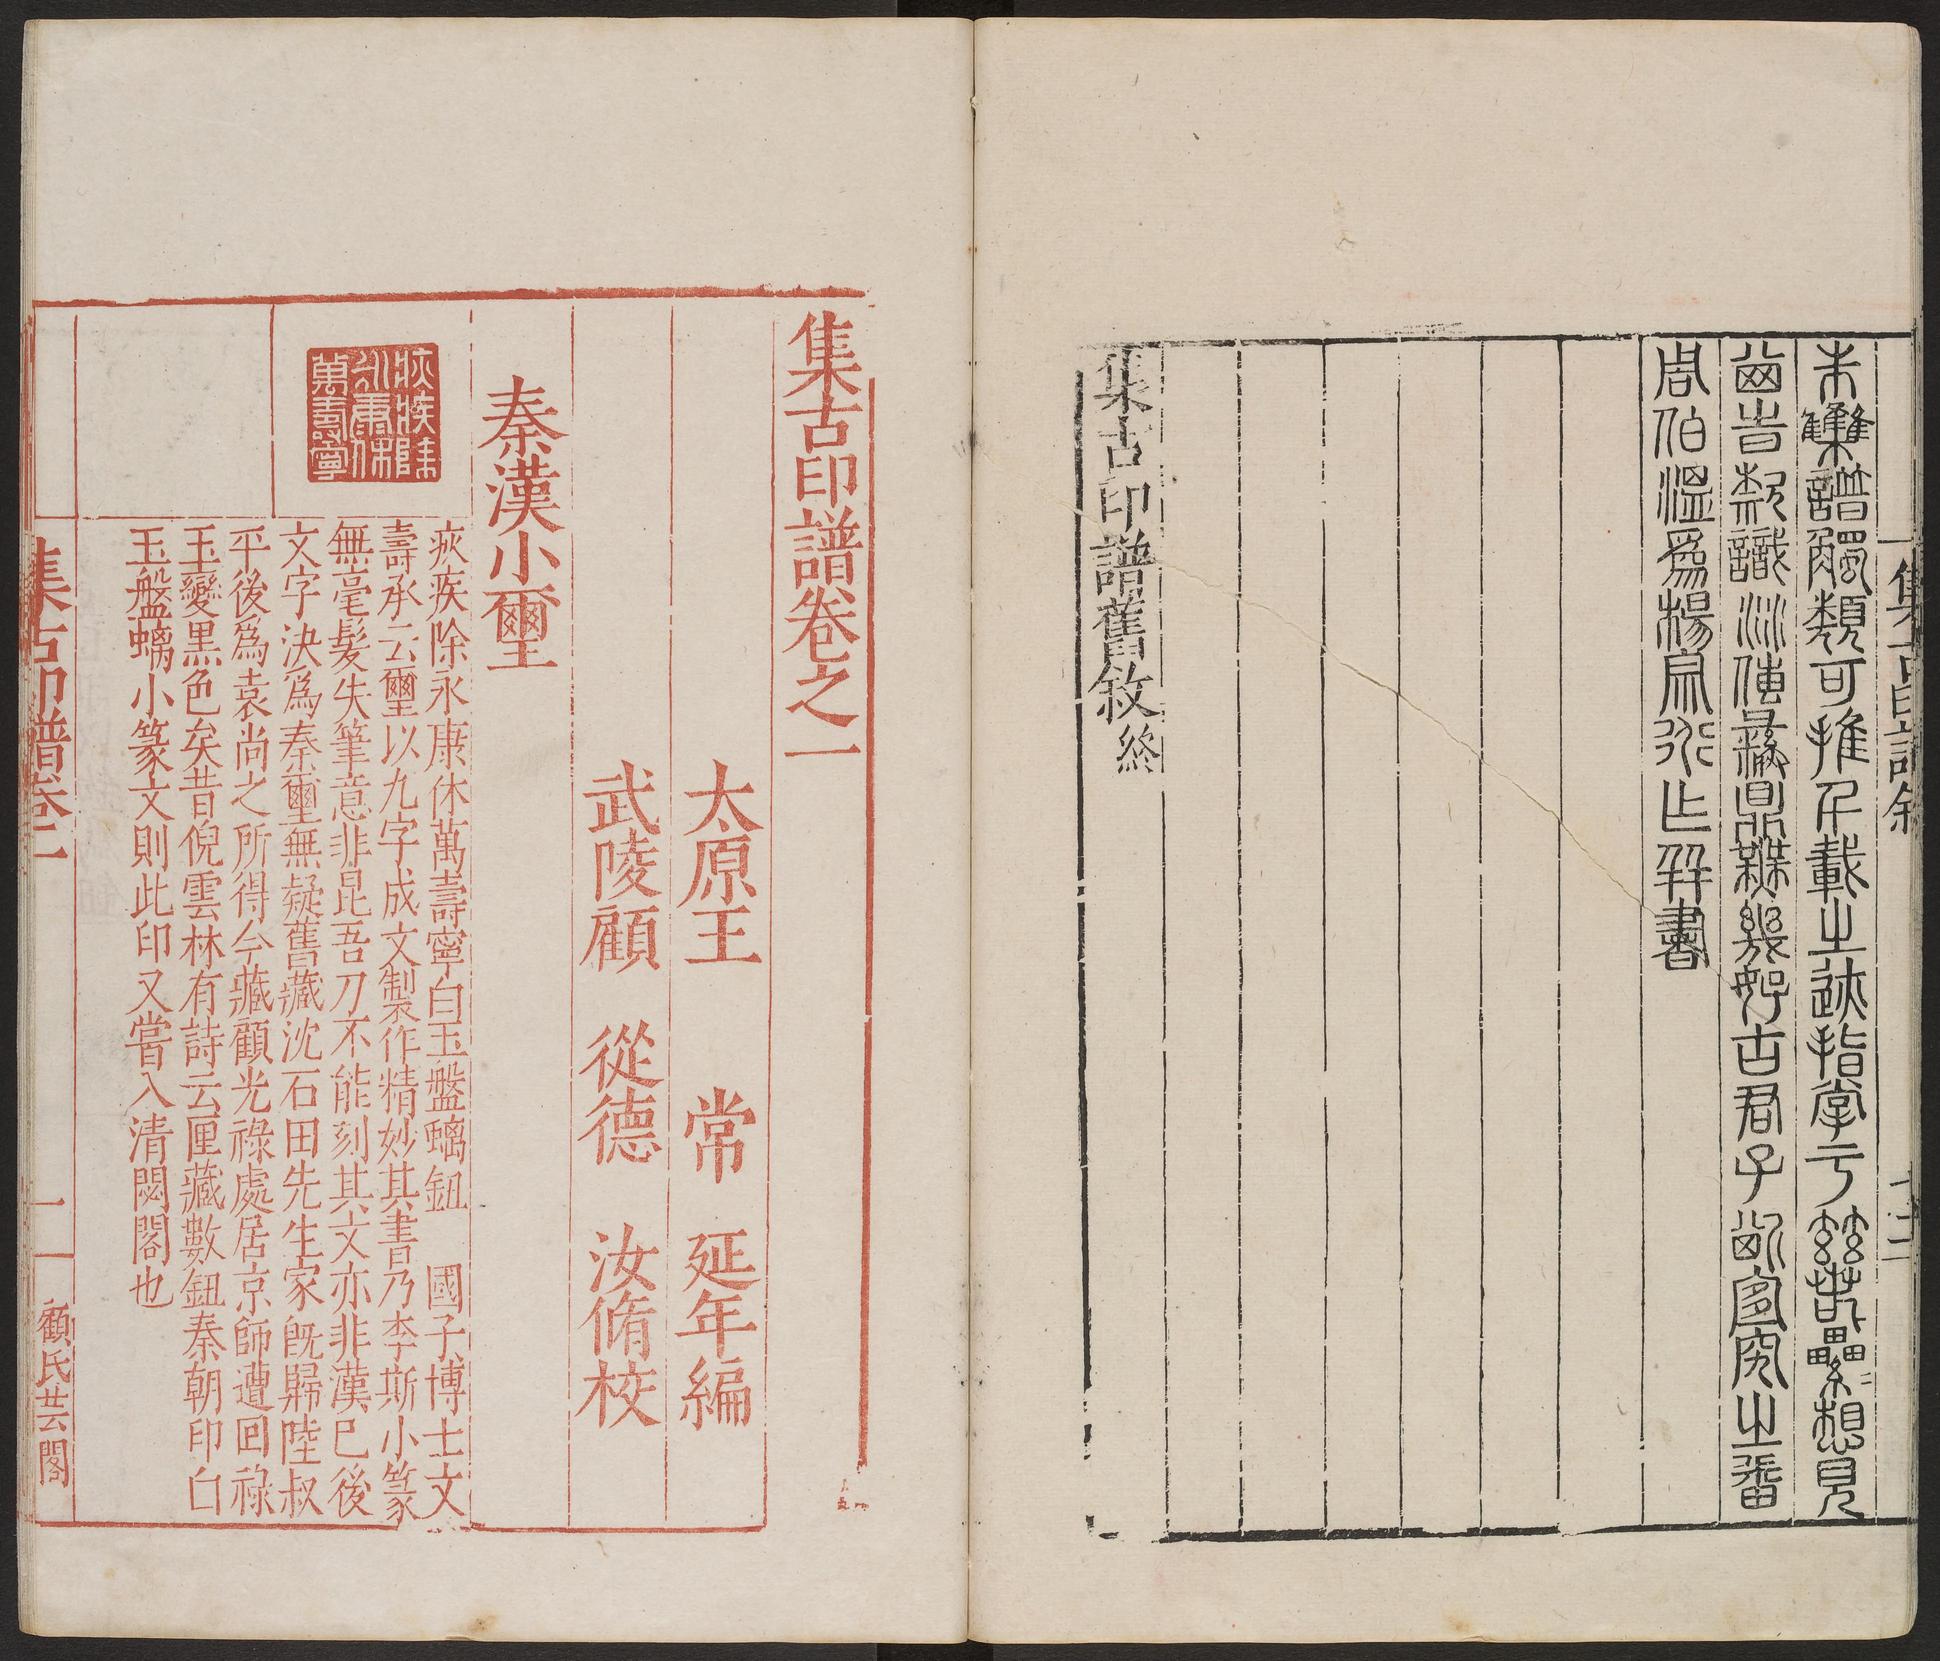 集古印譜敘
譜觸類可推千載之迹指掌于茲纍纍想見
款識流傳彝鼎幾好古君子尚究之
周伯溫爲楊宗并書
集古印譜舊敘終
集古印譜卷之一
太原王 常 延年編
武陵顧 從德 汝脩校
秦漢小璽
疢疾除永康休萬壽寧
疢疾除永康休萬壽寧白玉盤螭鈕 國子博士文
壽承云璽以九字成文製作精妙其書乃李斯小篆
無毫髮失筆意非昆吾刀不能刻其文亦非漢已後
文字決爲秦璽無疑舊藏沈石田先生家旣歸陸叔
平後爲袁尚之所得今藏顧光祿處居京師遭回祿
玉變黑色矣昔倪雲林有詩云匣藏數鈕秦朝印白
玉盤螭小篆文則此印又嘗入清閟閣也
集古印譜卷一
一
顧氏芸閣